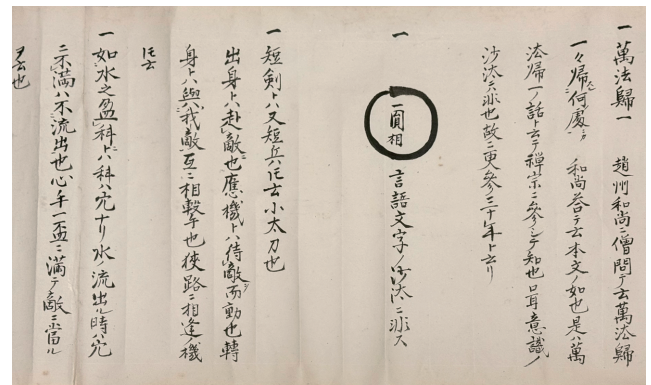 一 萬法歸一 趙州和尚ニ僧問テ云萬法歸
一々歸何處ニカ 和尚答テ云本文ノ如也是ハ萬
法歸一ノ話ト云テ禪宗ニ參シテ知也口耳意識ノ
沙汰ニ非也故ニ更參三十年ト云リ
一 一圓相 言語文字ノ沙汰ニ非ス
一 短劍トハ又短兵トモ云小太刀也
出身トハ赴敵也應機トハ待敵而動也轉
身トハ與我敵互ニ相擊乎也狹路ニ相逢ノ機
トモ云
一 如水之盈科トハ科ハ穴ナリ水流出ル時ハ穴
ニ不滿ハ不流出也心ヲ一盃ニ滿テ敵ニ當ル
ヲ云也